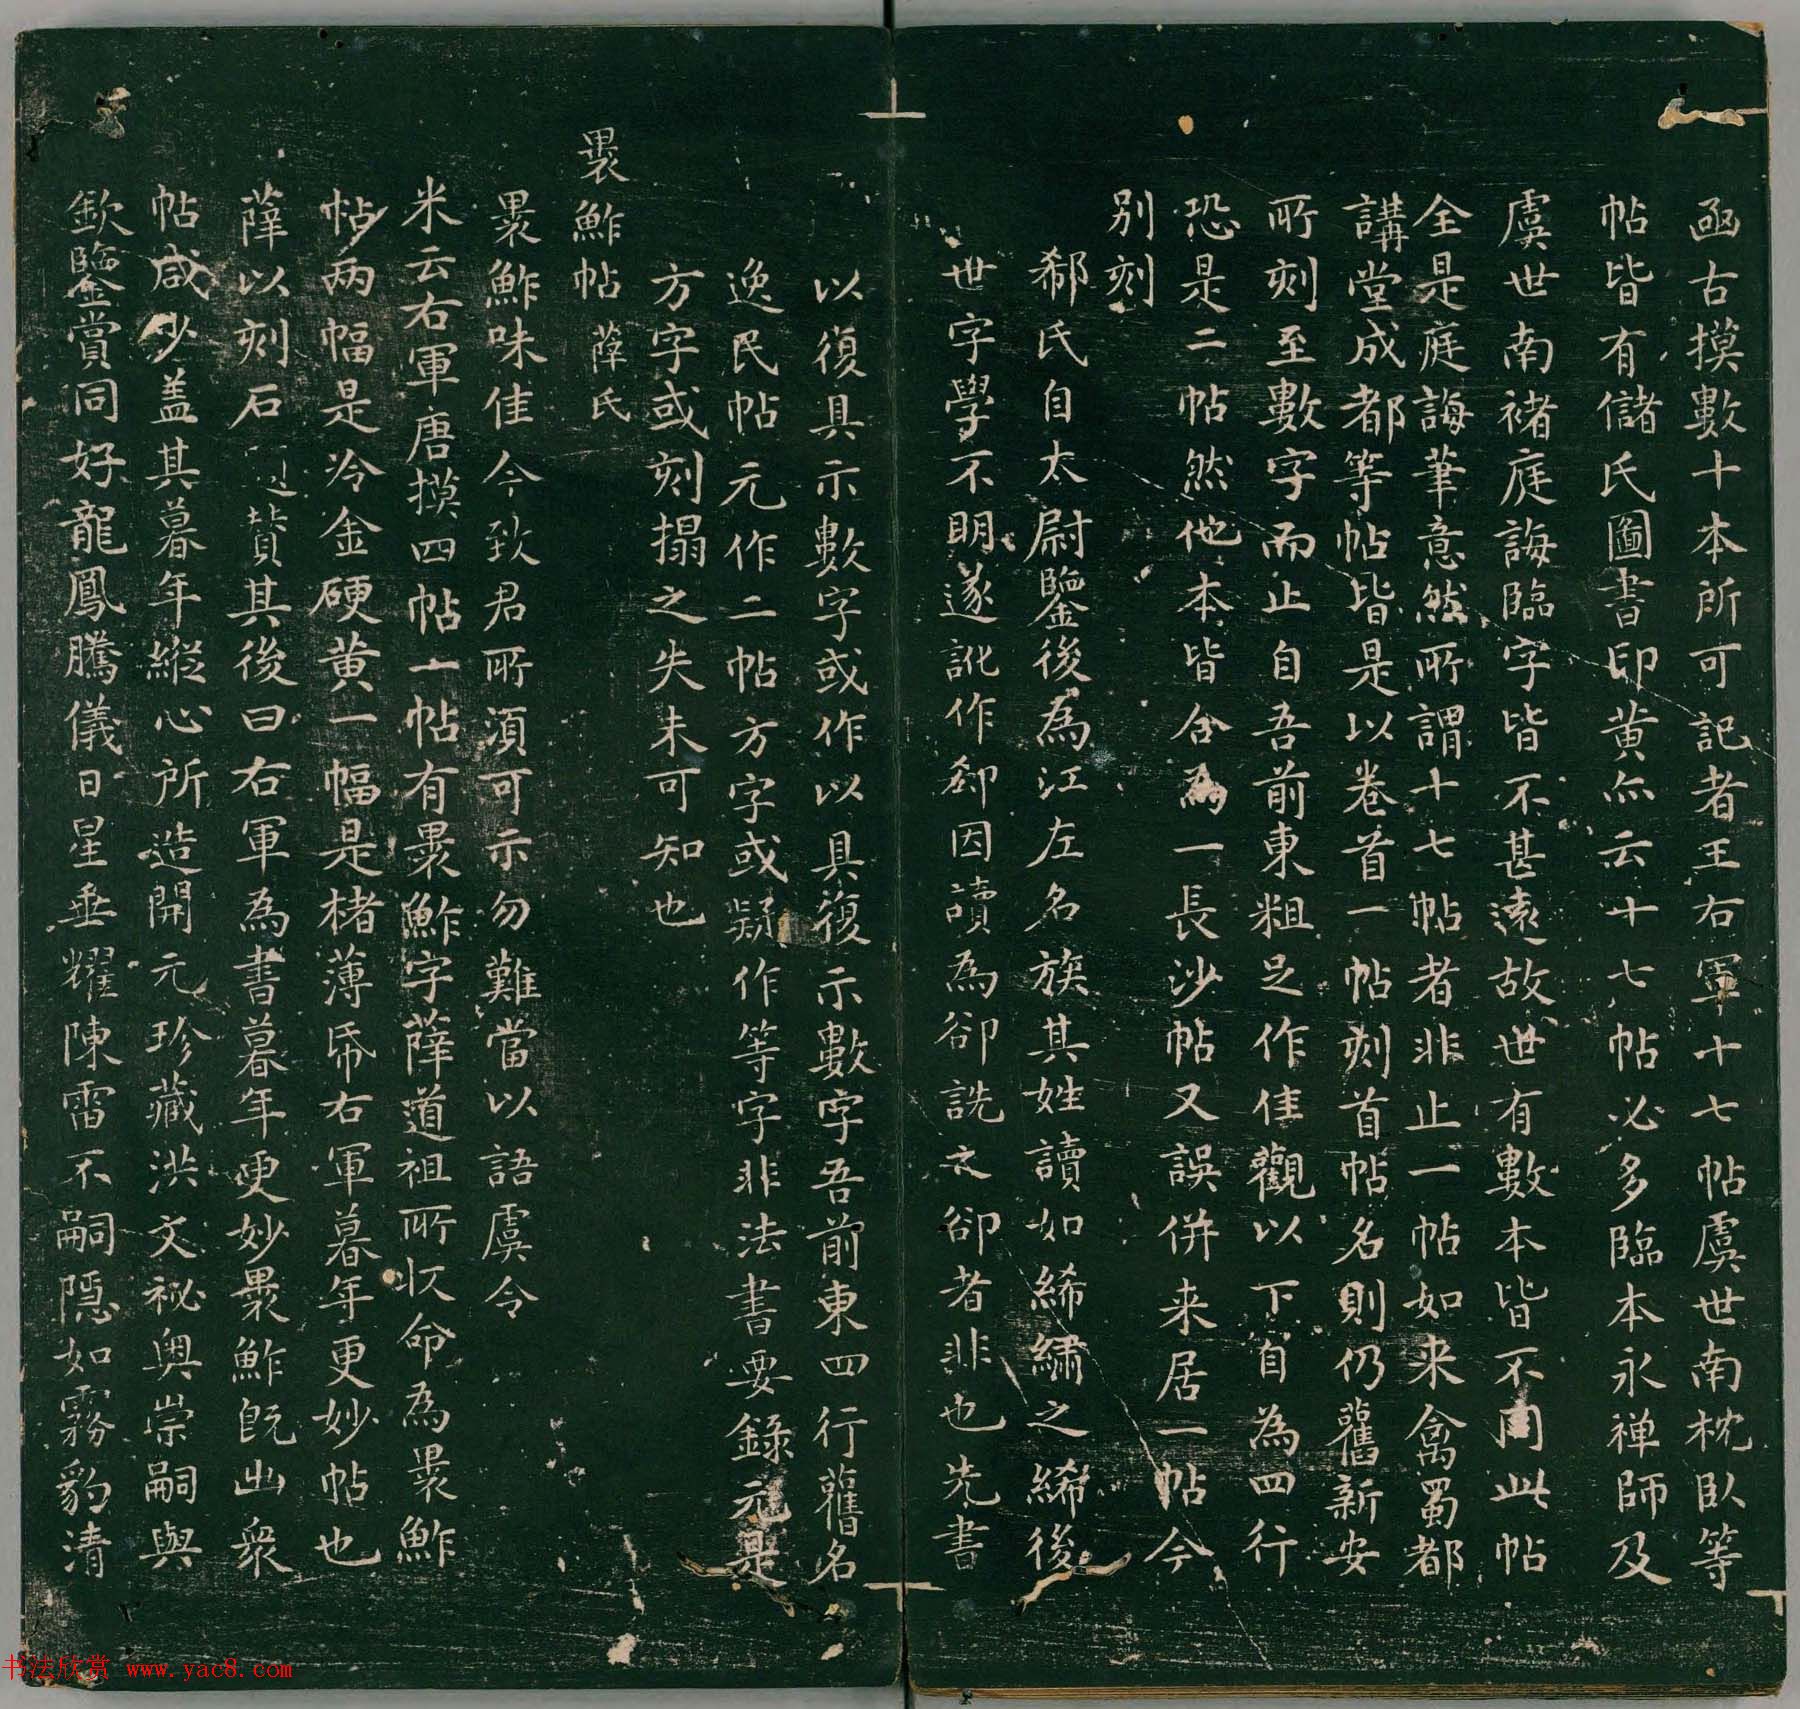 函古摸數十本所可記者王右軍十七帖虞世南枕臥等
帖皆有儲氏圖書印黄亦云十七帖必多臨本永禅師及
虞世南褚庭誨臨字皆不甚遠故世有數本皆不同此帖
全是庭誨筆意然所謂十七帖者非止一帖如来禽蜀都
講堂成都等帖皆是以卷首一帖刻首帖名則仍舊新安
所刻至數字而止自吾前東粗足作佳觀以下自為四行
恐是二帖然他本皆合為一長沙帖又誤併来居一帖今
别刻
郗氏自太尉鑒後為江左名族其姓讀如絺繡之絺後
世字學不明遂訛作郄因讀為郤詵之郤者非也先書
以復具示數字或作以具復示數字吾前東四行舊名
逸民帖元作二帖方字或疑作等字非法書要錄元是
方字或刻搨之失未可知也
裹鮓帖 薛氏
裹鮓味佳今致君所湏可示勿難當以語虞令
米云右軍唐摸四帖一帖有裹鮓字薛道祖所收命為裹鮓
帖两幅是冷金硬黄一幅是楮薄帋右軍暮年更妙帖也
薛以刻石 賛其後曰右軍為書暮年更妙裹鮓既出衆
帖咸少盖其暮年縱心所造開元珍藏洪文祕奥崇嗣與
歛臨賞同好龍鳳騰儀日星垂耀陳雷不嗣隱如霧豹清
书法欣赏 www.yac8.com